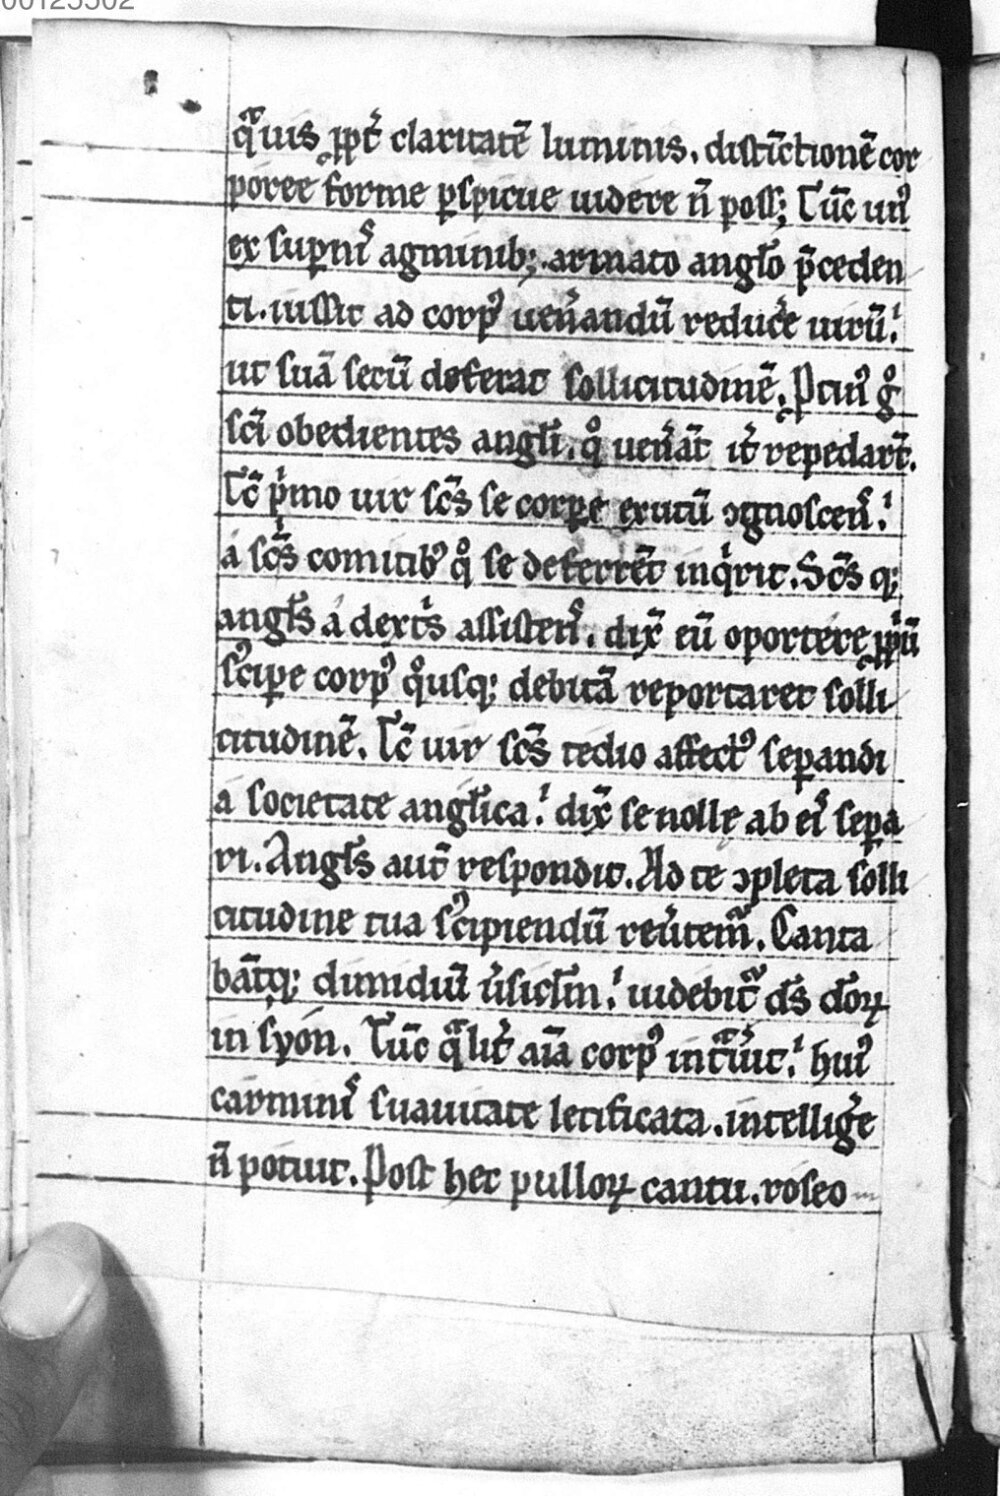 00125502
qͣuis ꝓpt̾ claritatē luminis. distīctionē cor
poree forme ꝑspicue uidere n̄ poss; Tūc unꝰ
ex suꝑnis agminib; armato angl̓o p̄ceden
ti. iussit ad corpꝰ uen̾andū reduc̾e uirū.
ut suā secū deferat sollicitudinē. Ptinꝰ gͦ
sc̄i obedientes angl̓i. qͦ uen̾āt it̾ repedart̄.
Tc̄ pⁱmo uir sc̄s se corpe exutū ꝯgnoscens.
á sc̄is comitibꝰ qͦ se deferrēt inqⁱrit. Sc̄s q;
angl̓s á dext̾s assistens. dix̄ eū oportere ꝓpⁱū
scipe corpꝰ qͦusq; debitā reportaret solli
citudinē. Tc̄ uir sc̄s tedio affectꝰ seꝑandi
á societate angl̓ica. dix̄ se nolle ab eis seꝑa
ri. Angl̓s aut̄ respondit. Ad te ꝯpleta solli
citudine tua scipiendū reu̾temͬ. Canta
bātq; dimidiū u̾sicl̓m. uidebit᷑ ds̄ dōꝝ
in syón. Tūc qͣlit̾ aīa corpꝰ intͣuit. huiꝰ
carminis suauitate letificata. intellig̾e
n̄ potuit. Post hec pulloꝝ cantu. roseo